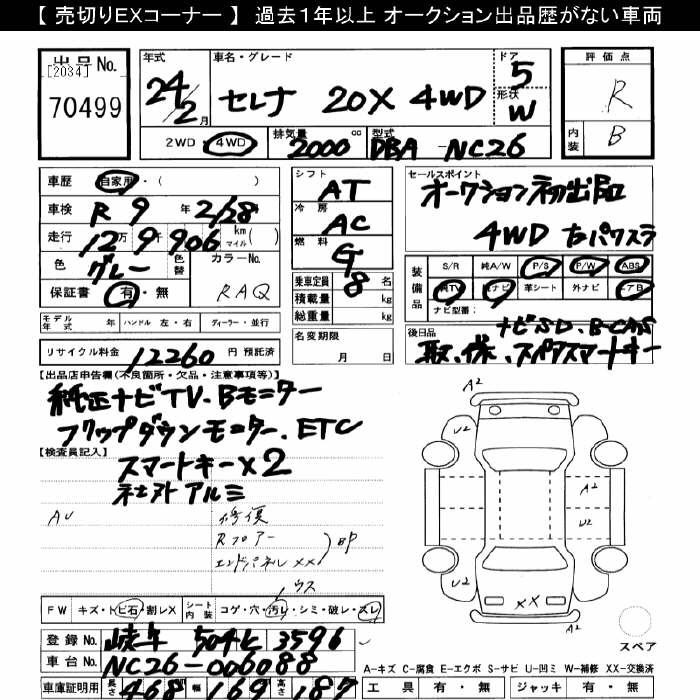 【 売切りEXコーナー 】 過去1年以上 オークション出品歴がない車両
出品 No.
[2034]
70499
年式
24/2月
車名・グレード
セレナ 20X 4WD
ドア
5
形状
W
評価点
R
内装
B
2WD・4WD
排気量
2000 cc
型式
DBA-NC26
車歴 自家用・( )
車検 R 9 年 2/28
走行 12万9千906 km マイル( )
色 グレー 色替
カラーNo. RAQ
保証書 有・無
モデル年式 年 ハンドル 左・右 ディーラー・並行
リサイクル料金 12260 円 預託済
シフト AT
冷房 AC
燃料 G
乗車定員 8 名
積載量 kg
総重量 kg
名変期限
月 日
セールスポイント
オークション初出品
4WD 左パワスラ
装備品
S/R 純A/W P/S P/W ABS
純TV 純ナビ 革シート 外ナビ エアB
ナビ型番:
ナビSD、B-CAS
後日品
取、保、スペアスマートキー
【出品店申告欄(不良箇所・欠品・注意事項等)】
純正ナビTV、Bモニター
フリップダウンモニター、ETC
【検査員記入】
スマートキー×2
社外アルミ
AU
修復
Rフロアー
エンドパネルXX
FW キズ・トビ石・割レX
シート内装 コゲ・穴・汚レ・シミ・破レ・スレ
登録 No. 岐阜 504 ヒ 3596
車台 No. NC26-006088
車庫証明用 長さ 468 幅 169 高さ 187
A2
U2
U2
A2
U2
A2
U2
XX
A2
スペア
A-キズ C-腐食 E-エクボ S-サビ U-凹ミ W-補修 XX-交換済
工具 有・無 ジャッキ 有・無